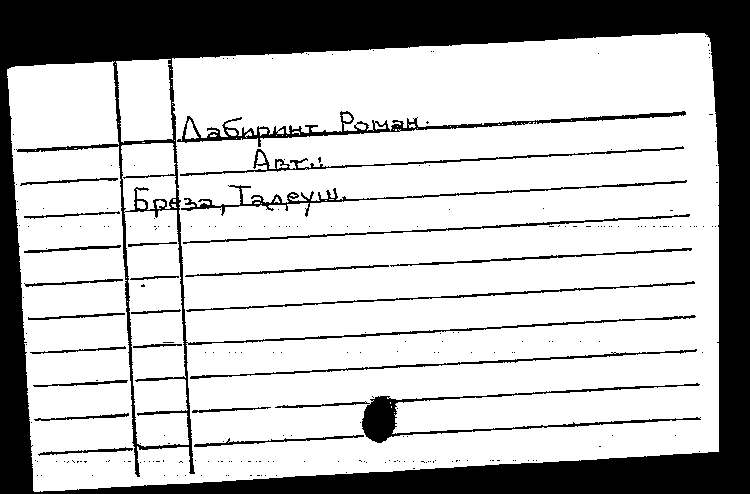 Лабиринт. Роман.
Авт.:
Бреза, Тадеуш.